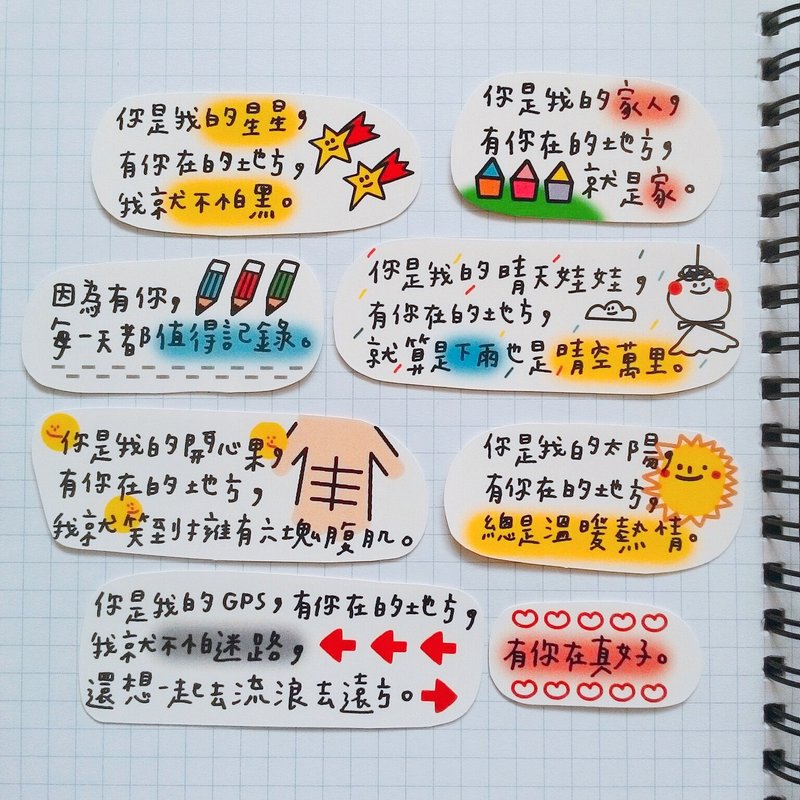 你是我的星星，
有你在的地方，
我就不怕黑。
你是我的家人，
有你在的地方，
就是家。
因為有你，
每一天都值得記錄。
你是我的晴天娃娃，
有你在的地方，
就算是下雨也是晴空萬里。
你是我的開心果，
有你在的地方，
我就笑到擁有六塊腹肌。
你是我的太陽，
有你在的地方，
總是溫暖熱情。
你是我的GPS，有你在的地方，
我就不怕迷路，
還想一起去流浪去遠方。
有你在真好。